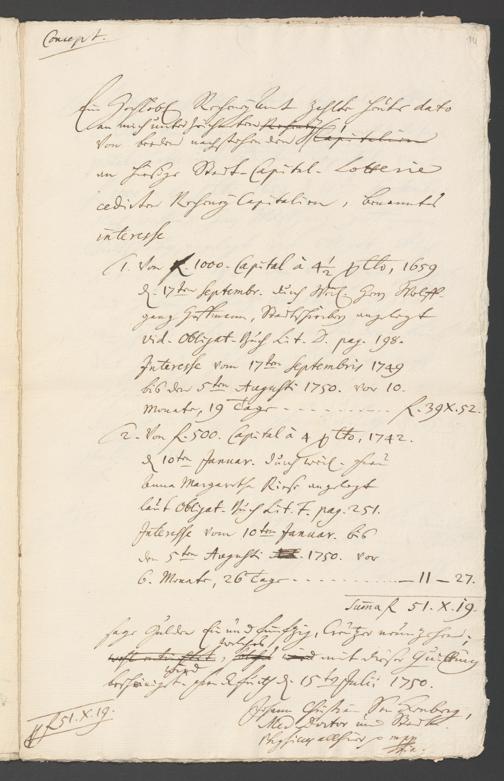 Concept.
14
Ein Hochlöbl. Rechney Amt zahlte heute dato
an mich unter
von beeden nachstehenden Capitalien
an hiesige Stadt-Capital-Lotterie
cedirten Rechney Capitalien, benantes
interesse
1. Von f. 1000. Capital à 4½ p Cto, 1659
d. 17ten Septembr. durch Weil. Herr Wolff-
gang Hoffmann, Stadtschreiber angelegt
vid. Obligat.-Buch Lit. D. pag. 198.
Interesse vom 17ten Septembris 1749
bis den 5ten Augusti 1750. vor 10.
Monate, 19 Tage - - - - - - - - - f. 39 X. 52.
2. Von f. 500. Capital à 4 p Cto, 1742.
d. 10ten Januar. durch weil. Frau
Anna Margaretha angelegt
laut Obligat. Buch Lit. F. pag. 251.
Interesse vom 10ten Januar. bis
den 5ten Augusti 1750. vor
6. Monate, 26 Tage - - - - - - - - - - 11 - 27.
Suma f. 51. X. 19.
sage Gulden Ein und funfzig, Creuzer neunzehen;
welches mit dieser Quittung
bescheinigt d. 15ten Julii 1750.
f. 51. X. 19.
Johann Christian Senckenberg,
Med. Doctor und Stadt
Physicus allhier mpp